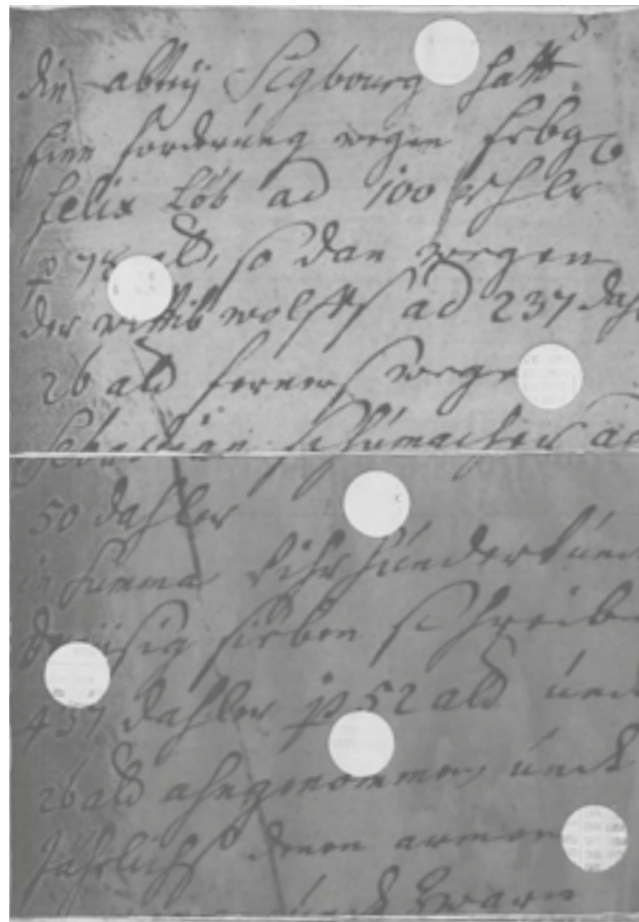 die abteÿ Sigbourg hatt
eine forderung wegen
felix Löb ad 100 rthlr
ald, so dan wegen
der wittib wolffs ad 237 dahl
26 ald ferners wege
schumacher ad
50 dahler
in summa vihrhundert und
sieben schreibe
437 dahler 52 ald und
26 ald ahngenommen und
Jährlichs denen armen
und